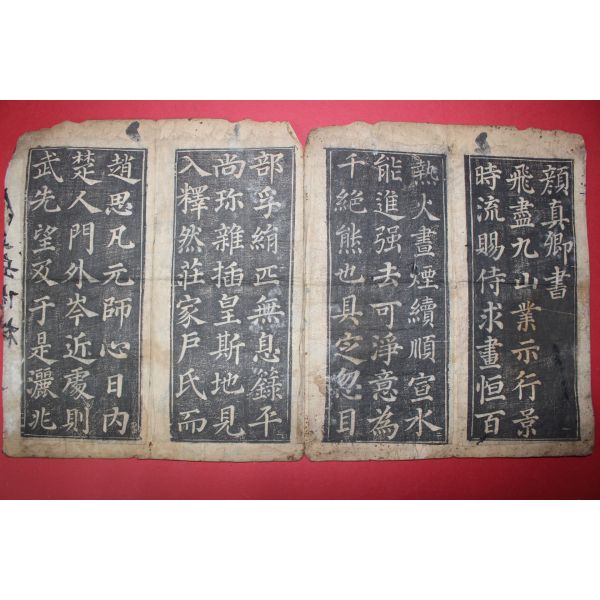 顔真卿書
飛盡九山業示行景
時流賜侍求畫恒百
熱火晝煙續順宣水
能進强去可淨意為
千絶熊也具定忽目
部孚絹匹無息籙平
尚珎雜插皇斯地見
入釋然莊家戶氏而
趙思凡元師心日内
楚人門外岑近處則
武先望及于是灑兆